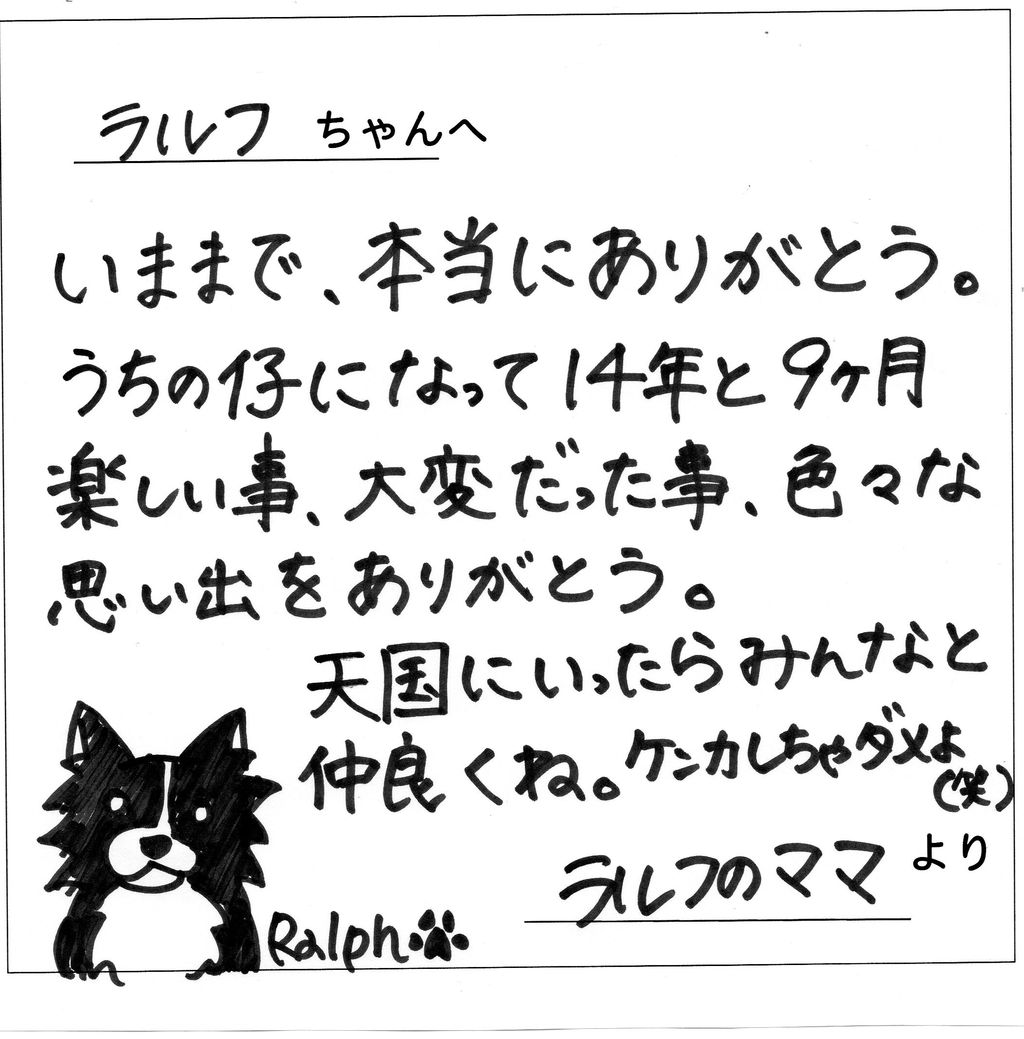 ラルフ ちゃんへ
いままで、本当にありがとう。
うちの仔になって14年と9ヶ月
楽しい事、大変だった事、色々な
思い出をありがとう。
天国にいったらみんなと
仲良くね。ケンカしちゃダメよ
(笑)
ラルフのママ より
Ralph